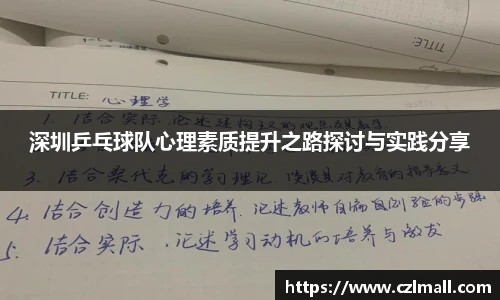 TITLE:
TITLE: 心理学
1. 结合实际,论述建构主义的
深圳乒乓球队心理素质提升之路探讨与实践分享
3. 结合桑代克的学习理论 谈谈其对教育的指导意义
4. 结合创造力的培养.论述教师自编自创 的步骤
5. 结合实际 ,论述学习动机的培养与激发
https://www.czlmall.com